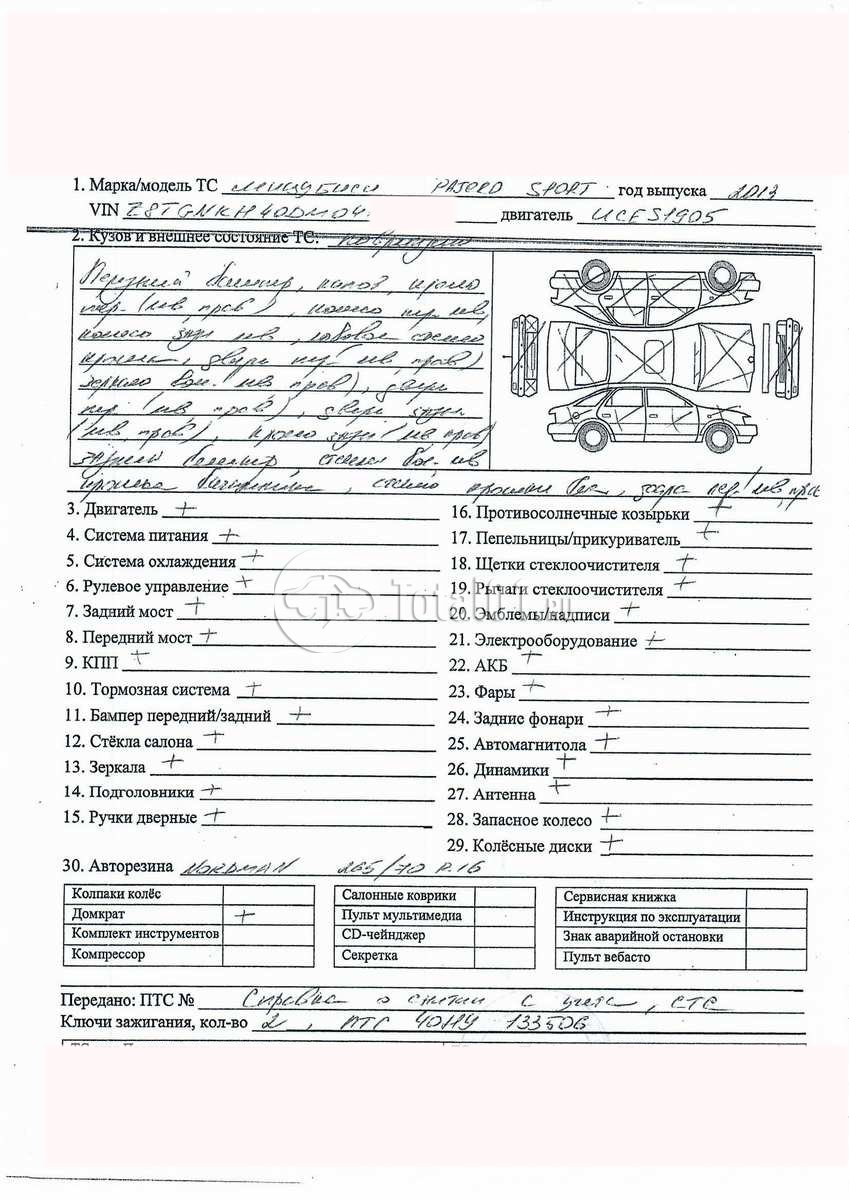 1. Марка/модель ТС Мицубиси PAJERO SPORT год выпуска 2013
VIN Z8TGNKH40DM04 двигатель UCFS1905
2. Кузов и внешнее состояние ТС:
Передний бампер, капот, крыло
пер. (лев, прав), колесо пер. лев,
колесо задн лев, лобовое стекло
крыша, двери пер (лев, прав)
зеркало бок. (лев, прав), двери
пер (лев, прав), двери задн
(лев, прав), крыло задн (лев прав)
задний бампер, стекло бок. лев
крышка багажника, стекло крышки баг, фара пер. лев, прав
3. Двигатель +
4. Система питания +
5. Система охлаждения +
6. Рулевое управление +
7. Задний мост +
8. Передний мост +
9. КПП +
10. Тормозная система +
11. Бампер передний/задний +
12. Стёкла салона +
13. Зеркала +
14. Подголовники +
15. Ручки дверные +
16. Противосолнечные козырьки +
17. Пепельницы/прикуриватель +
18. Щетки стеклоочистителя +
19. Рычаги стеклоочистителя +
20. Эмблемы/надписи +
21. Электрооборудование +
22. АКБ +
23. Фары +
24. Задние фонари +
25. Автомагнитола +
26. Динамики +
27. Антенна +
28. Запасное колесо +
29. Колёсные диски +
Total01.ru
30. Авторезина NORDMAN 265/70 R.16
Колпаки колёс
Домкрат +
Комплект инструментов
Компрессор
Салонные коврики
Пульт мультимедиа
CD-чейнджер
Секретка
Сервисная книжка
Инструкция по эксплуатации
Знак аварийной остановки
Пульт вебасто
Передано: ПТС № Справка о снятии с учета, СТС
Ключи зажигания, кол-во 2, ПТС 40НУ 133506